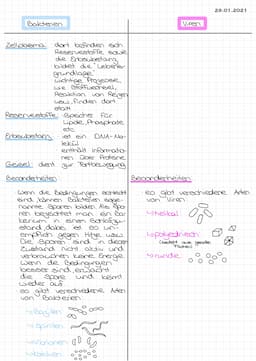 29.01.2021
Bakterien
Viren
Zellplasma: dort befinden sich
Reservestoffe sowie
die Erbsubstanz,
bildet die Lebens-
grundlage
wichtige Prozesse,
wie Stoffwechsel,
Reaktion von Reizen
usw. finden dort
statt
Reservestoffe: Speicher für
Lipide, Phosphate
etc.
Erbsubstanz: ist ein DNA-Mo-
lekül
enthält Informatio-
nen über Proteine
Geißel: dient zur Fortbewegung
Besonderheiten
Wenn die Bedingungen schlecht
sind, können Bakterien soge-
nannte Sporen bilden. Als Spo-
ren bezeichnet man ein Bak-
terium in einem
zustand, dabei ist es un-
empfindlich gegen Hitze usw.
Die Sporen sind in dieser
Zustand nicht aktiv und
verbrauchen keine Energie.
Wenn die Bedingungen
besser sind, erwacht
die Spore und keimt
wieder auf.
es gibt verschiedene Arten
von Bakterien
↳ Bazillen
↳ Spirillen
↳ Vibrionen
↳ Kokken
Besonderheiten
es gibt verschiedene Arten
von Viren
↳ helikal
↳ polyedrisch
(besteht aus
Flächen)
↳ runde